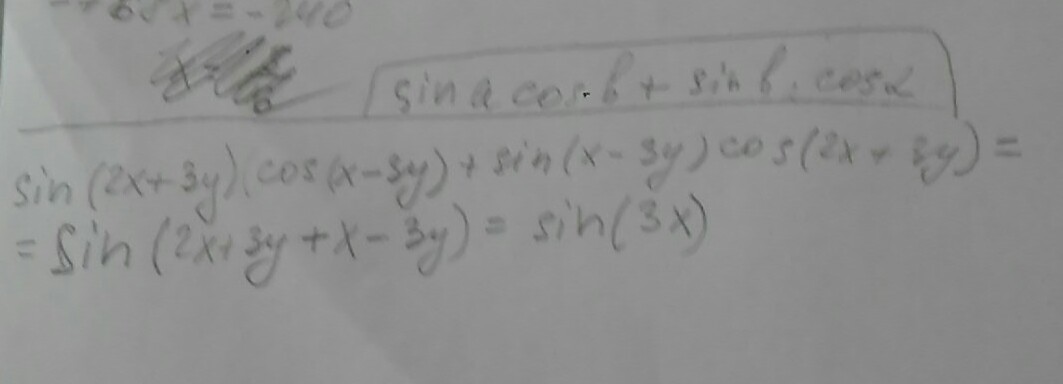 68x = -240
sin a cos b + sin b . cos α
sin (2x+3y) . cos (x-3y) + sin (x-3y) cos (2x + 3y) =
= Sin (2x+3y + x - 3y) = sin (3x)